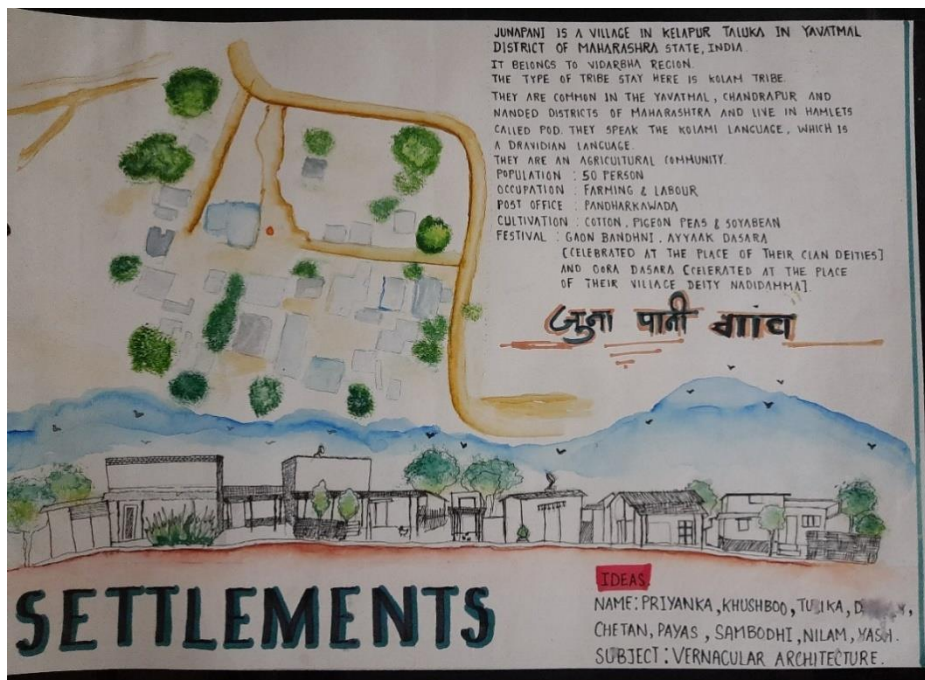 JUNAPANI IS A VILLAGE IN KELAPUR TALUKA IN YAVATMAL
DISTRICT OF MAHARASHRA STATE, INDIA.
IT BELONGS TO VIDARBHA REGION.
THE TYPE OF TRIBE STAY HERE IS KOLAM TRIBE.
THEY ARE COMMON IN THE YAVATMAL, CHANDRAPUR AND
NANDED DISTRICTS OF MAHARASHTRA AND LIVE IN HAMLETS
CALLED POD. THEY SPEAK THE KOLAMI LANGUAGE, WHICH IS
A DRAVIDIAN LANGUAGE.
THEY ARE AN AGRICULTURAL COMMUNITY.
POPULATION : 50 PERSON
OCCUPATION : FARMING & LABOUR
POST OFFICE : PANDHARKAWADA
CULTIVATION : COTTON, PIGEON PEAS & SOYABEAN
FESTIVAL : GAON BANDHNI, AYYAAK DASARA
[CELEBRATED AT THE PLACE OF THEIR CLAN DEITIES]
AND OORA DASARA [CELERATED AT THE PLACE
OF THEIR VILLAGE DEITY NADIDAMMA].
जुना पानी गाांव
SETTLEMENTS
IDEAS
NAME: PRIYANKA, KHUSHBOO,
CHETAN, PAYAS, SAMBODHI, NILAM, YASH.
SUBJECT: VERNACULAR ARCHITECTURE.